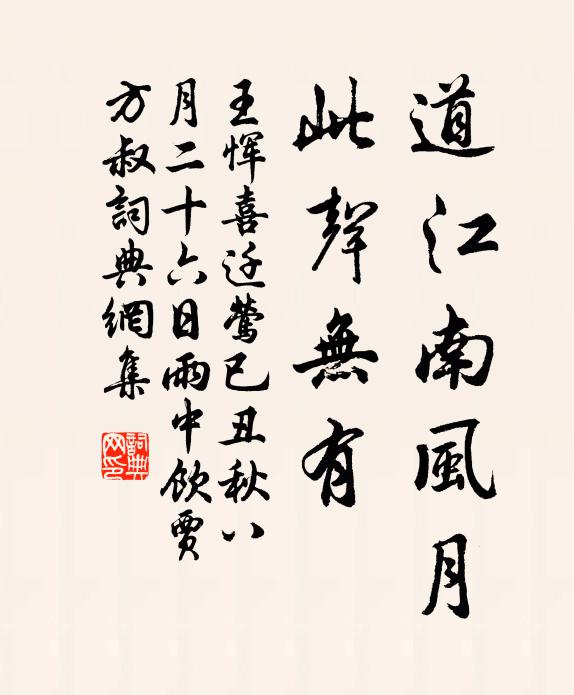 道江南風月
此聲無有
王惲喜迁鶯已丑秋八
月二十六日雨中飲賈
方叔詞典網集
詞典
网印